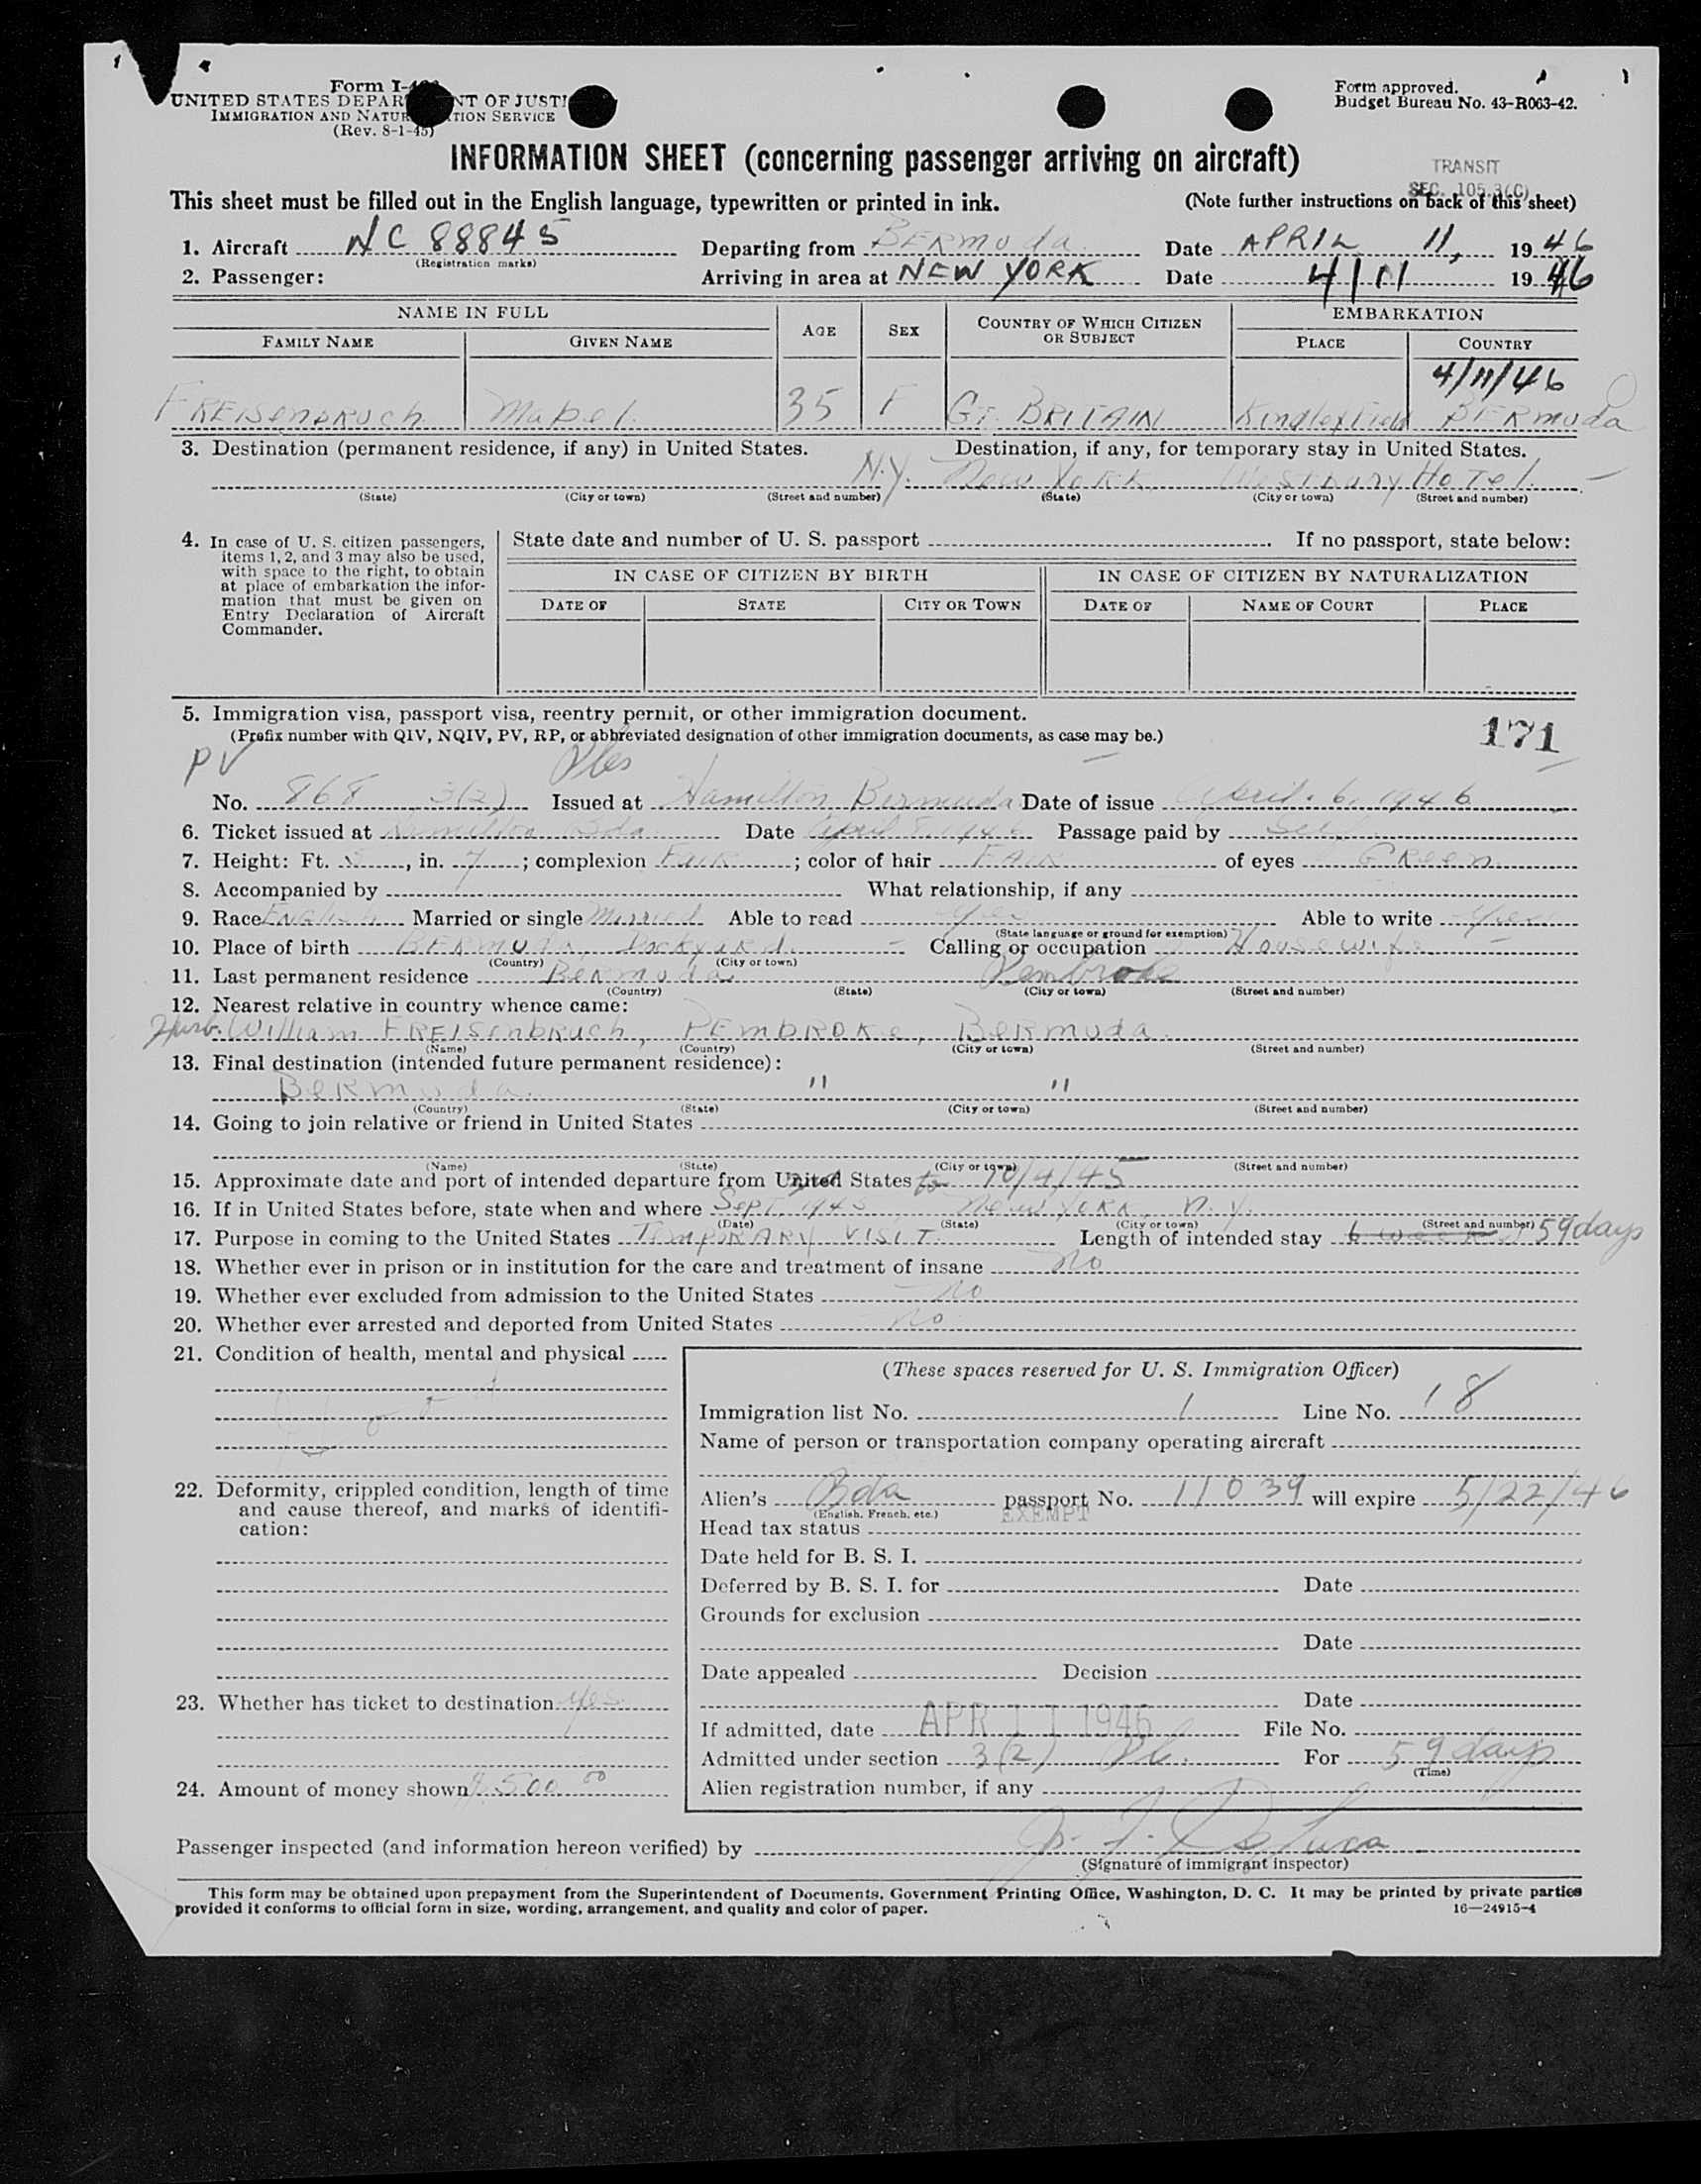 Form I-4
UNITED STATES DEPAR NT OF JUSTI
IMMIGRATION AND NATUR TION SERVICE
(Rev. 8-1-45)
Form approved.
Budget Bureau No. 43-R063-42.
INFORMATION SHEET (concerning passenger arriving on aircraft)
TRANSIT
SEC. 105.3(C)
This sheet must be filled out in the English language, typewritten or printed in ink. (Note further instructions on back of this sheet)
1. Aircraft NC 88845 Departing from BERMUDA Date APRIL 11, 1946
(Registration marks)
2. Passenger: Arriving in area at NEW YORK Date 4/11 1946
NAME IN FULL AGE SEX COUNTRY OF WHICH CITIZEN OR SUBJECT EMBARKATION
FAMILY NAME GIVEN NAME PLACE COUNTRY
4/11/46
FREISENBRUCH Mabel. 35 F GT. BRITAIN Kindley Field BERMUDA
3. Destination (permanent residence, if any) in United States. Destination, if any, for temporary stay in United States.
N.Y. New York, Westbury Hotel.
(State) (City or town) (Street and number) (State) (City or town) (Street and number)
4. In case of U. S. citizen passengers, items 1, 2, and 3 may also be used, with space to the right, to obtain at place of embarkation the information that must be given on Entry Declaration of Aircraft Commander.
State date and number of U. S. passport If no passport, state below:
IN CASE OF CITIZEN BY BIRTH IN CASE OF CITIZEN BY NATURALIZATION
DATE OF STATE CITY OR TOWN DATE OF NAME OF COURT PLACE
5. Immigration visa, passport visa, reentry permit, or other immigration document.
(Prefix number with QIV, NQIV, PV, RP, or abbreviated designation of other immigration documents, as case may be.)
171
PV
No. 868 3(2) Issued at Hamilton Bermuda Date of issue April 6, 1946
6. Ticket issued at Hamilton Bda Date April 8, 1946 Passage paid by Self
7. Height: Ft. 5, in. 7; complexion Fair; color of hair Fair of eyes Green
8. Accompanied by What relationship, if any
9. Race English Married or single Married Able to read Yes Able to write Yes
(State language or ground for exemption)
10. Place of birth BERMUDA, Dockyard. Calling or occupation Housewife
(Country) (City or town)
11. Last permanent residence Bermuda Pembroke
(Country) (State) (City or town) (Street and number)
12. Nearest relative in country whence came:
Husb. William FREISENBRUCH, PEMBROKE, BERMUDA.
(Name) (Country) (City or town) (Street and number)
13. Final destination (intended future permanent residence):
Bermuda. " "
(Country) (State) (City or town) (Street and number)
14. Going to join relative or friend in United States
(Name) (State) (City or town) (Street and number)
15. Approximate date and port of intended departure from United States to 10/4/45
16. If in United States before, state when and where Sept. 1945 New York, N.Y.
(Date) (State) (City or town) (Street and number)
17. Purpose in coming to the United States TEMPORARY VISIT Length of intended stay 6 weeks 59 days
18. Whether ever in prison or in institution for the care and treatment of insane No
19. Whether ever excluded from admission to the United States No
20. Whether ever arrested and deported from United States No
21. Condition of health, mental and physical
Good
22. Deformity, crippled condition, length of time and cause thereof, and marks of identification:
23. Whether has ticket to destination Yes
24. Amount of money shown $500 00
(These spaces reserved for U. S. Immigration Officer)
Immigration list No. 1 Line No. 18
Name of person or transportation company operating aircraft
Alien's Bda passport No. 11039 will expire 5/22/46
(English, French, etc.)
EXEMPT
Head tax status
Date held for B. S. I.
Deferred by B. S. I. for Date
Grounds for exclusion
Date
Date appealed Decision
Date
If admitted, date APR 11 1946 File No.
Admitted under section 3(2) For 59 days
(Time)
Alien registration number, if any
Passenger inspected (and information hereon verified) by J. De Luca
(Signature of immigrant inspector)
This form may be obtained upon prepayment from the Superintendent of Documents, Government Printing Office, Washington, D. C. It may be printed by private parties
provided it conforms to official form in size, wording, arrangement, and quality and color of paper.
16—24915-4